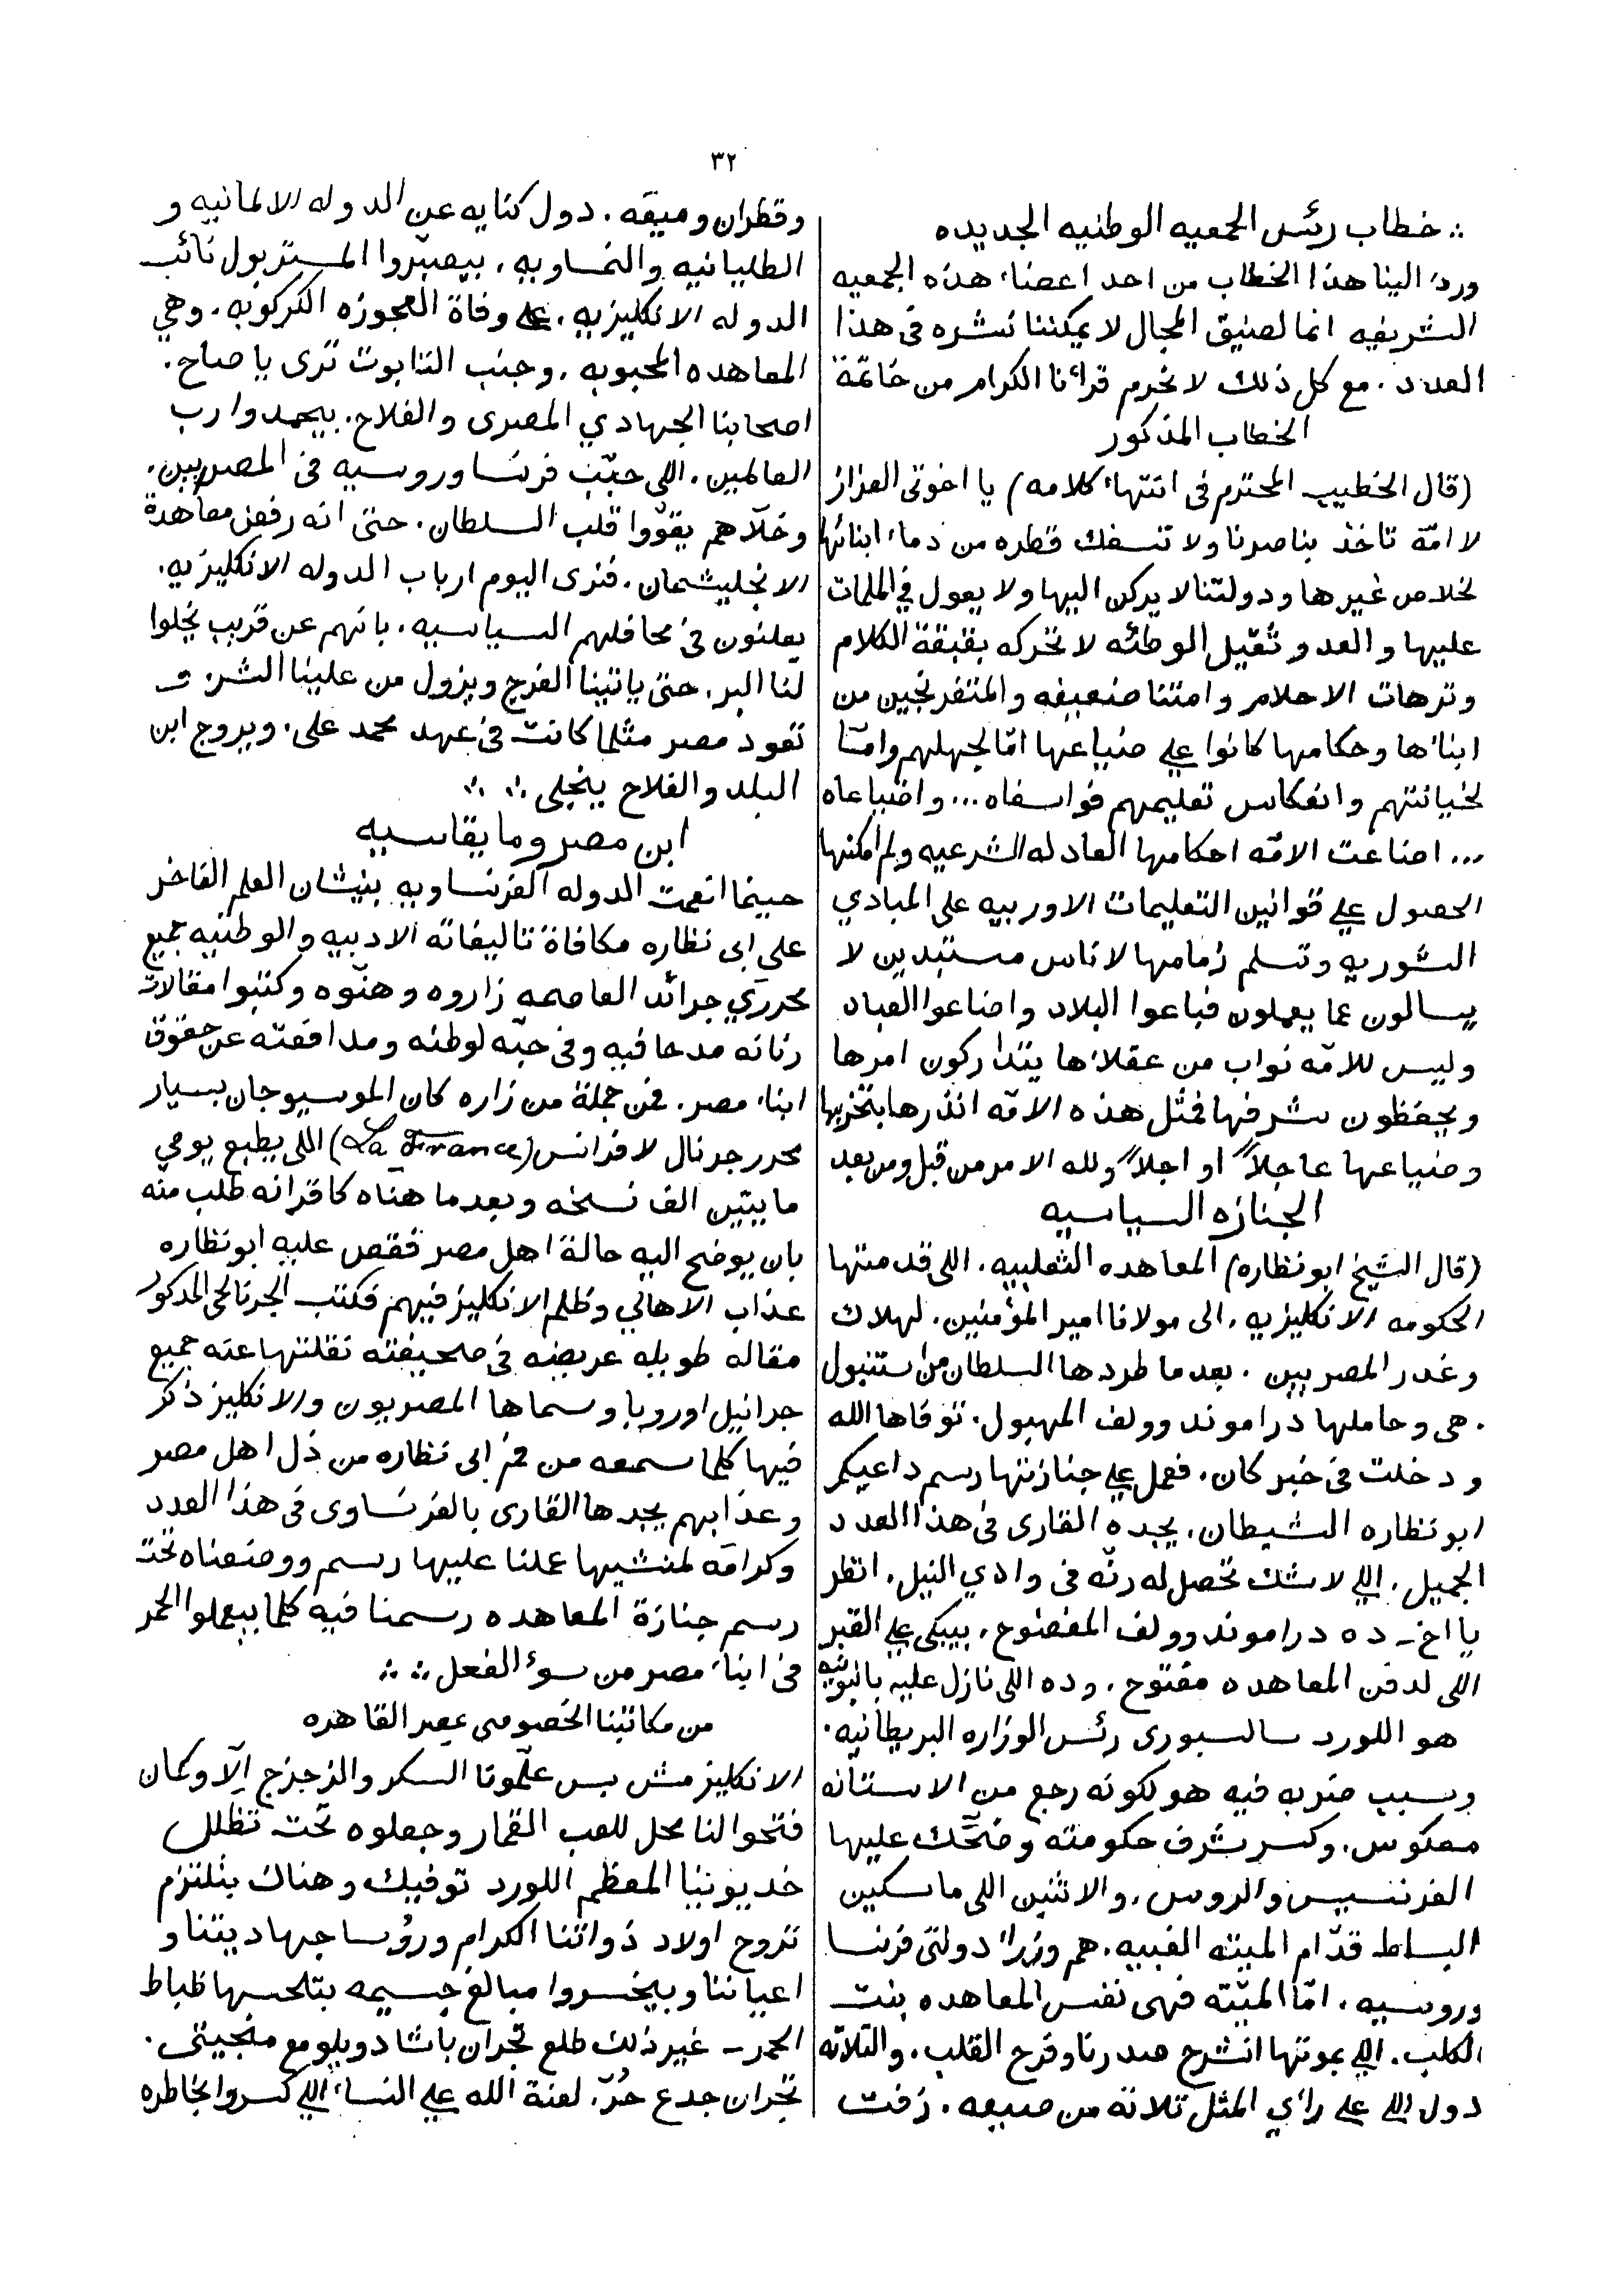 ٣٢
∴ خطاب رئس الجمعيه الوطنيه الجديده
ورد الينا هذا الخطاب من احد اعضاء هذه الجمعيه
الشريفه انما لضيق المجال لا يمكننا نشره فى هذا
العدد . مع كل ذلك لا نحرم قرائنا الكرام من خاتمة
الخطاب المذكور
(قال الخطيب المحترم فى انتهاء كلامه) يا اخوتى العزاز
لا امّة تاخذ بناصرنا ولا تسفك قطره من دماء ابنائها
لخلاص غيرها ودولتنا لا يركن اليها ولا يعول في الملمات
عليها والعدو ثقيل الوطئه لا تحركه بقبقة الكلام
وترهات الاحلام وامتنا ضعيفه والمتفرنجين من
ابناءها وحكامها كانوا على ضياعها امّا لجهلهم وامّا
لخيانتهم وانعكاس تعليمهم فواسفاه ... واضياعاه
... اضاعت الامّه احكامها العادله الشرعيه ولم امكنها
الحصول على قوانين التعليمات الاوربيه على المبادي
الشوريه وتسلم زمامها لاناس مستبدين لا
يسالون عما يعملون فباعوا البلاد واضاعوا العباد
وليس للامّه نواب من عقلاءها يتداركون امرها
ويحفظون شرفها فمثل هذه الامّه انذرها بتخريبها
وضياعها عاجلاً او اجلاً ولله الامر من قبل ومن بعد
الجنازه السياسيه
(قال الشيخ ابو نظاره) المعاهده الثعلبيه . اللى قدمتها
الحكومه الانكليزيه . الى مولانا امير المؤمنين . لهلاك
وغدر المصريين . بعد ما طردها السلطان من استنبول
. هى وحاملها دراموند وولف المهبول . توفاها الله
ودخلت فى خبر كان . فعمل على جنازتها رسم داعيكم
ابو نظاره الشيطان . يجده القارى فى هذا العدد
الجميل . اللي لا شك تحصل له رنّه فى وادي النيل . انظر
يا اخ - ده دراموند وولف المفضوح . بيبكى على القبر
اللى لدفن المعاهده مفتوح . وده اللى نازل عليه بالنبوتيه
هو اللورد سالسبورى رئس الوزاره البريطانيه .
وسبب ضربه فيه هو لكونه رجع من الاستانه
معكوس . وكسر شرف حكومته وضحّك عليها
الفرنسيس والروس . والاثنين اللى ماسكين
البساط قدّام الميته الغبيه . هم وزراء دولتى فرنسا
وروسيه . امّا الميّته فهى نفس المعاهده بنت
الكلب . اللي بموتها انشرح صدرنا وفرح القلب . والثلاثه
دول اللي على رأي المثل تلاته من ضيعه . زفت
وقطران وميقه . دول كنايه عن الدوله الالمانيه و
الطليانيه والنمساويه . بيصبّروا المستر بول نائب
الدوله الانكليزيه . على وفاة العجوزه الكركوبه . وهي
المعاهده المحبوبه . وجنب التابوت ترى يا صاح .
اصحابنا الجهادي المصرى والفلاح . بيحمدوا رب
العالمين . اللى حبّب فرنسا وروسيه فى المصريين .
وخلّاهم يقوّوا قلب السلطان . حتى انه رفض معاهدة
الانجليشمان . فنرى اليوم ارباب الدوله الانكليزيه .
يعلنون فى محافلهم السياسيه . بانهم عن قريب يخلوا
لنا البر . حتى ياتينا الفرج ويزول من علينا الشر . و
تعود مصر مثلما كانت فى عهد محمد على . ويروج ابن
البلد والفلاح ينجلى ∴ ∴
ابن مصر وما يقاسيه
حينما انعمت الدوله الفرنساويه بنيشان العلم الفاخر
على ابى نظاره مكافاة تاليفاته الادبيه والوطنيه جميع
محررَي جرائد العاصمه زاروه وهنّوه وكتبوا مقالات
رنانه مدحا فيه وفى حبّه لوطنه ومدافعته عن حقوق
ابناء مصر . فمن جملة من زاره كان الموسيو جان بسيار
محرر جرنال لافرانس (La France) اللى يطبع يومي
مايتين الف نسخه وبعد ما هناه كاقرانه طلب منه
بان يوضح اليه حالة اهل مصر فقص عليه ابو نظاره
عذاب الاهالي وظلم الانكليز فيهم فكتب الجرنالجى المذكور
مقاله طويله عريضه فى صحيفته نقلتها عنه جميع
جرانيل اوروبا وسماها المصريون والانكليز ذكر
فيها كلما سمعه من فم ابى نظاره من ذل اهل مصر
وعذابهم يجدها القارى بالفرنساوى فى هذا العدد
وكرامّه لمنشيها عملنا عليها رسم ووضعناه تحت
رسم جنازة المعاهده رسمنا فيه كلما بيعملوا الحمر
فى ابناء مصر من سوء الفعل ∴ ∴
من مكاتبنا الخصوصى بمصر القاهره
الانكليز مش بس علّمونا السكر والمزجزج إلّا وكمان
فتحوا لنا محل للعب القمار وجعلوه تحت تظلل
خديونا المعظم اللورد توفيك وهناك بيلتزم
تروح اولاد ذواتنا الكرام ورؤسا جهاديتنا و
اعياننا وبيخسروا مبالغ جسيمه بتلحسها ظباط
الحمر - غير ذلك طلع نجران باشا دوبلو مع منجيتى .
نجران جدع حُرّ . لعنة الله على النساء اللي كسروا بخاطره